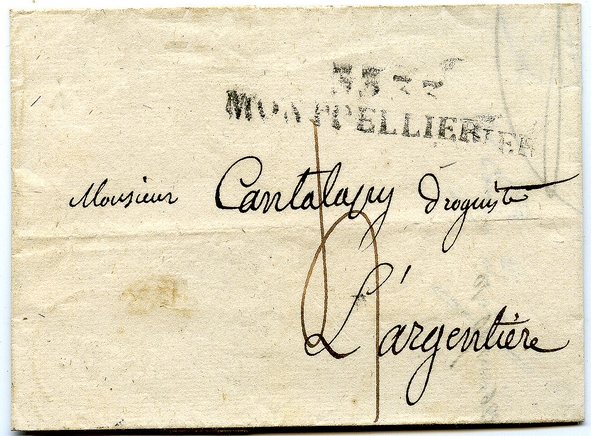 33
MONTPELLIER
Monsieur Cantalupy droguiste
L'argentière